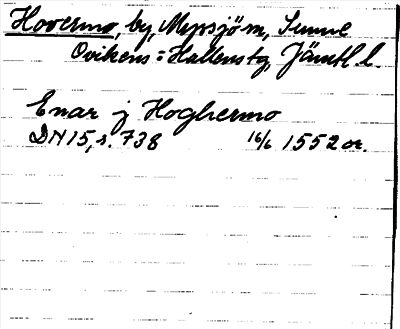 Hovermo, by, Myssjö sn, Sunne
Ovikens = Hallens tg, Jämtl. l.
Enar j Hoghermo
DN 15, s. 738 16/6 1552 or.